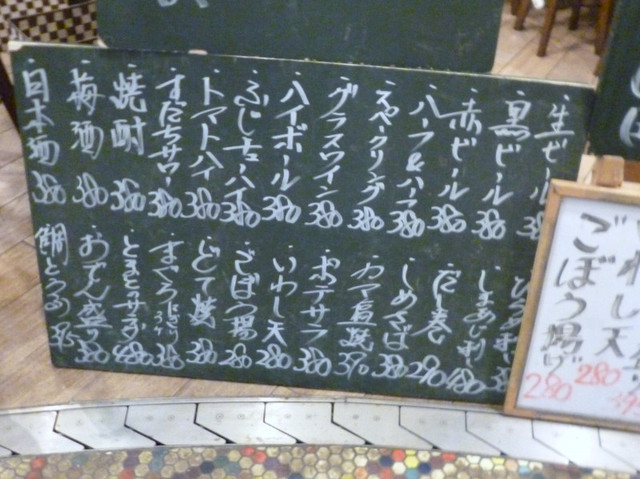 生ビール 380
黒ビール 380
赤ビール 380
ハーフ&ハーフ 380
スパークリング 380
グラスワイン 380
ハイボール 380
ふじ古ハイ 380
トマトハイ 380
すだちサワー 380
焼酎 380
梅酒 380
日本酒 380
しまあじ刺 480
だし巻 290
しめさば 380
カマ塩焼 390
ポテサラ 380
いわし天 280
ごぼう揚 280
どて焼 380
まぐろにぎり 3ヶ
とまとサラダ
おでん盛り
鯛とろろ
いわし天 280
ごぼう揚げ 280